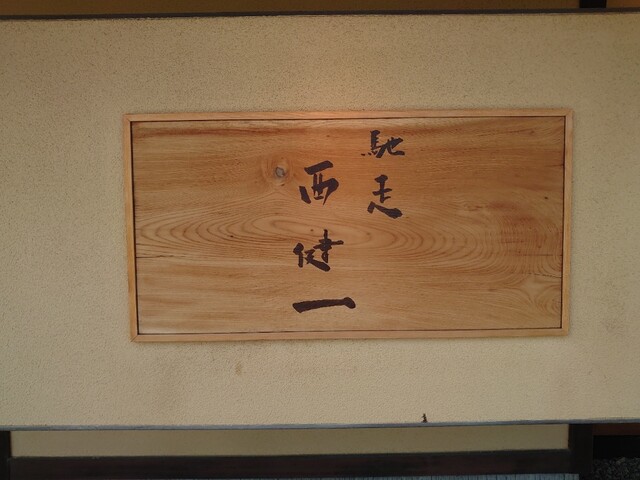 馳走
西健一